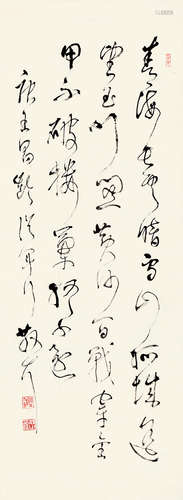 青海長雲暗雪山孤城遥
望玉門關黄沙百戰穿金
甲不破樓蘭終不還
王昌齡從軍行